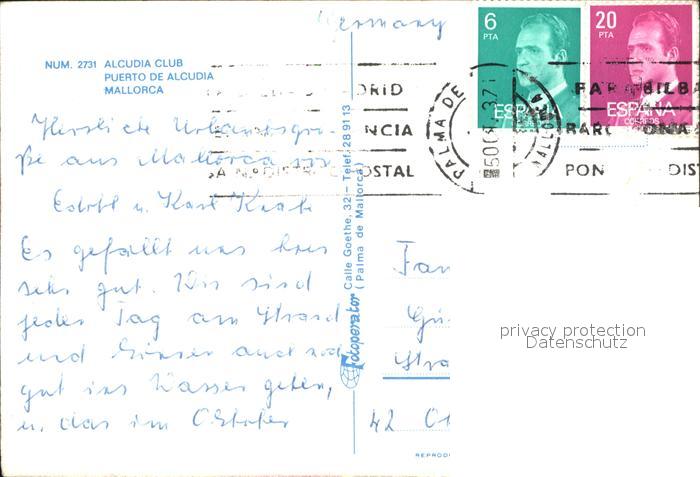 Germany
NUM. 2731 ALCUDIA CLUB
PUERTO DE ALCUDIA
MALLORCA
6
PTA
ESPAÑA
20
PTA
ESPAÑA
CORREOS
PALMA DE
MALLORCA
RID
NCIA
POSTAL
PARA BILBA
PARA
ONA
PON
DIS
Herzliche Urlaubsgrü-
ße aus Mallorca
u. Karl
Es gefällt uns hier
sehr gut. Wir sind
jeden Tag am Strand
und können auch noch
gut ins Wasser gehen,
u. das im Oktober
Fotoperator Calle Goethe, 32 – Telef. 28 91 13
(Palma de Mallorca)
Fam
Gü
Stra
42 O
REPROD
privacy protection
Datenschutz